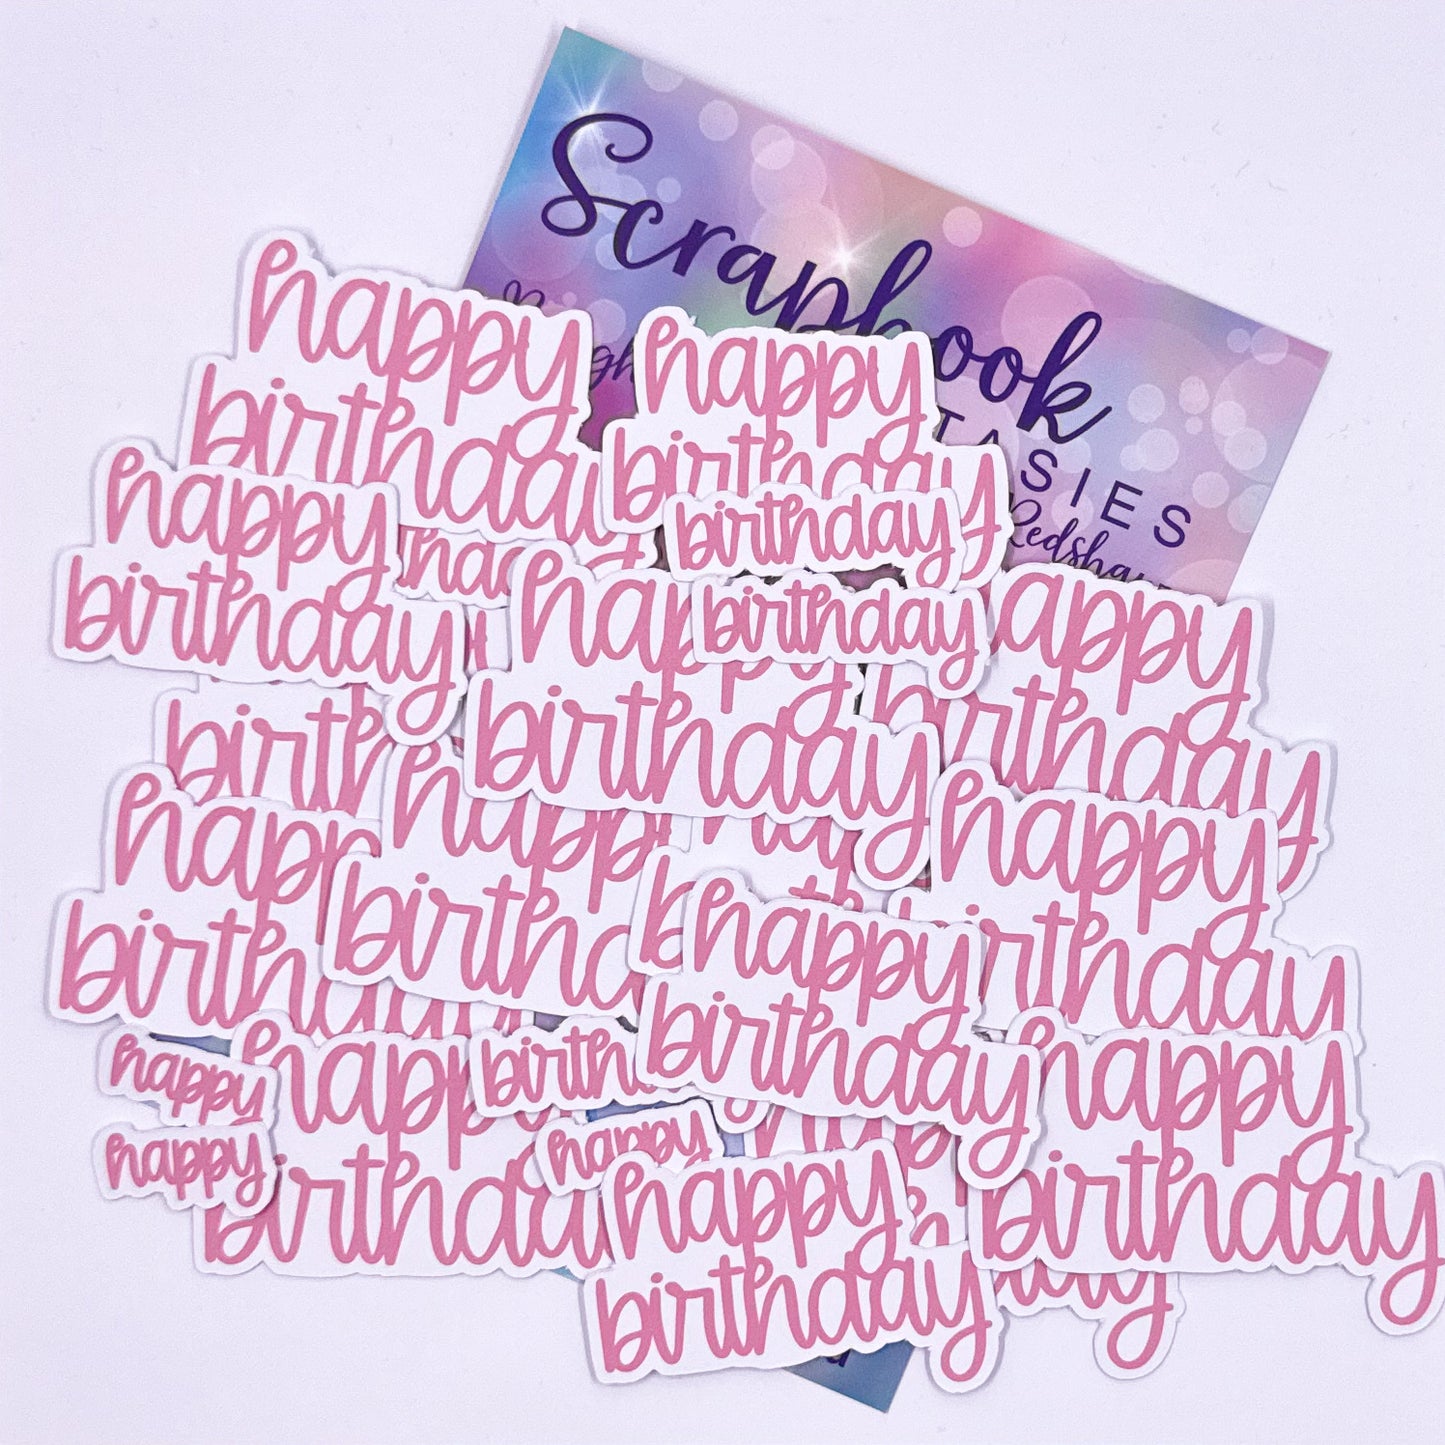 Scrapbook
happy
birthday
happy
birthday
birthday
happy
birthday
happy
birthday
birthday
happy
birthday
happy
birthday
happy
birthday
happy
birthday
happy
birthday
happy
birthday
happy
happy
happy
birthday
happy
happy
birthday